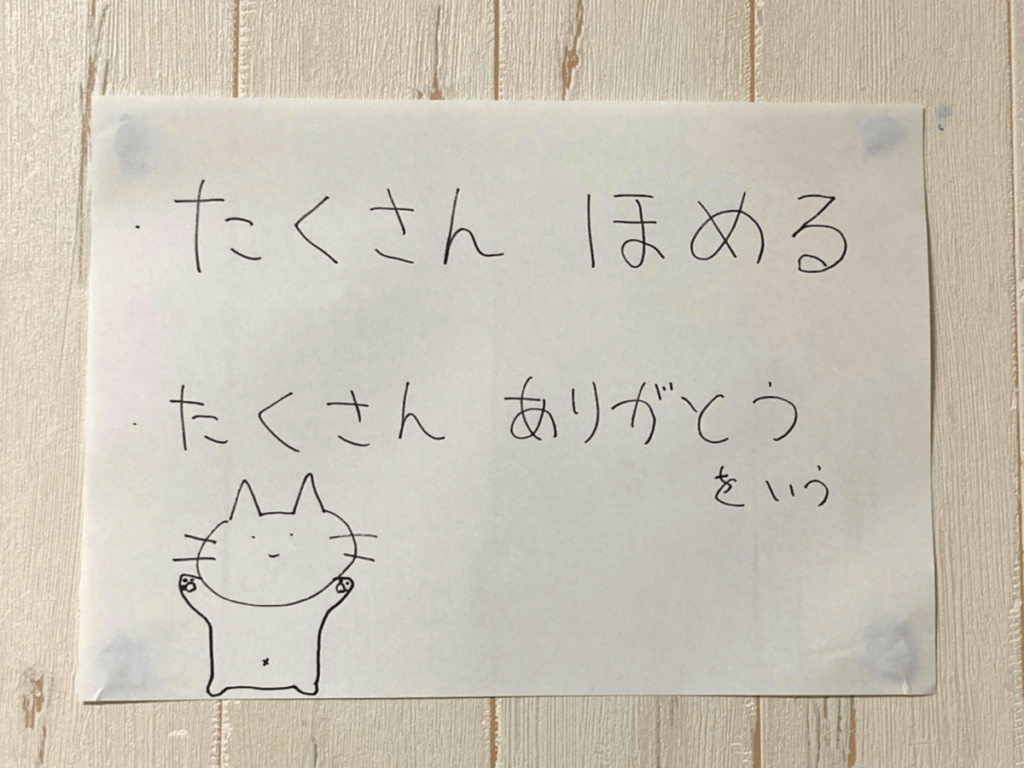 ・たくさん ほめる
・たくさん ありがとう
をいう